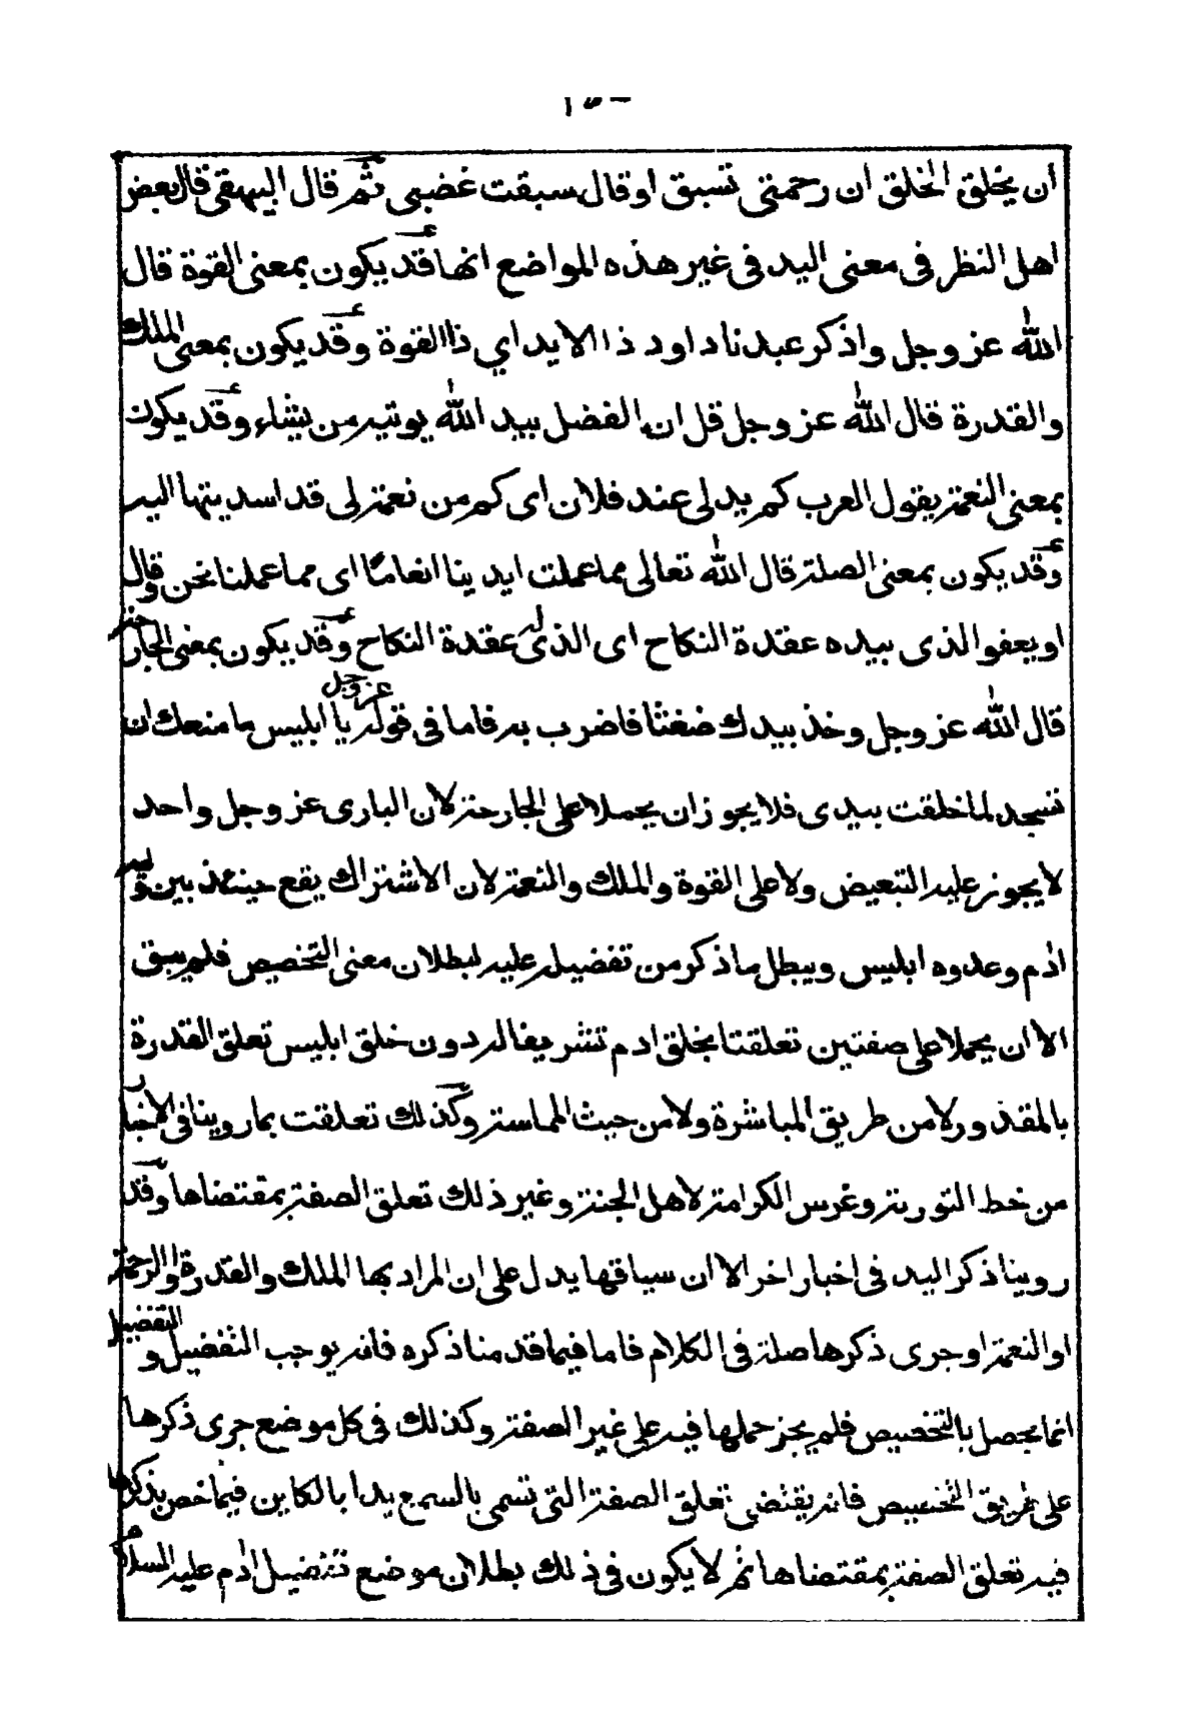 ان يخلق الخلق ان رحمتي تسبق او قال سبقت غضبي ثم قال البيهقي قال بعض
اهل النظر في معنى اليد في غير هذه المواضع انها قد يكون بمعنى القوة قال
الله عز وجل واذكر عبدنا داود ذا الايد اي ذا القوة وقد يكون بمعنى الملك
والقدرة قال الله عز وجل قل ان الفضل بيد الله يوتيه من يشاء وقد يكون
بمعنى النعمة يقول العرب كم يد لى عند فلان اى كم من نعمة لى قد اسديتها اليه
وقد يكون بمعنى الصلة قال الله تعالى مما عملت ايدينا انعاما اى مما عملنا نحن وقال
او يعفو الذى بيده عقدة النكاح اى الذى له عقدة النكاح وقد يكون بمعنى الجارحة
قال الله عز وجل وخذ بيدك ضغثا فاضرب به فاما في قوله عز وجل يا ابليس ما منعك ان
تسجد لما خلقت بيدى فلا يجوز ان يحملا على الجارحة لان البارى عز وجل واحد
لا يجوز عليه التبعيض ولا على القوة والملك والنعمة لان الاشتراك يقع حينئذ بين وليه
ادم وعدوه ابليس ويبطل ما ذكر من تفضيله عليه لبطلان معنى التخصيص فلم يبق
الا ان يحملا على صفتين تعلقتا بخلق ادم تشريفا له دون خلق ابليس تعلق القدرة
بالمقدور لا من طريق المباشرة ولا من حيث المماسة وكذلك تعلقت بما روينا في الاخبار
من خط التورية وغرس الكرامة لاهل الجنة وغير ذلك تعلق الصفة بمقتضاها وقد
روينا ذكر اليد في اخبار اخر الا ان سياقها يدل على ان المراد بها الملك والقدرة والرحمة
او النعمة او جرى ذكرها صلة في الكلام فاما فيما قدمنا ذكره فانه يوجب التفضيل والتفضيل
انما يحصل بالتخصيص فلم يجز حملها فيه على غير الصفة وكذلك في كل موضع جرى ذكرها
على طريق التخصيص فانه يقتضى تعلق الصفة التى تسمى بالسمع يدا بالكاين فيما خص بذكرها
فيه تعلق الصفة بمقتضاها ثم لا يكون في ذلك بطلان موضع تفضيل ادم عليه السلام